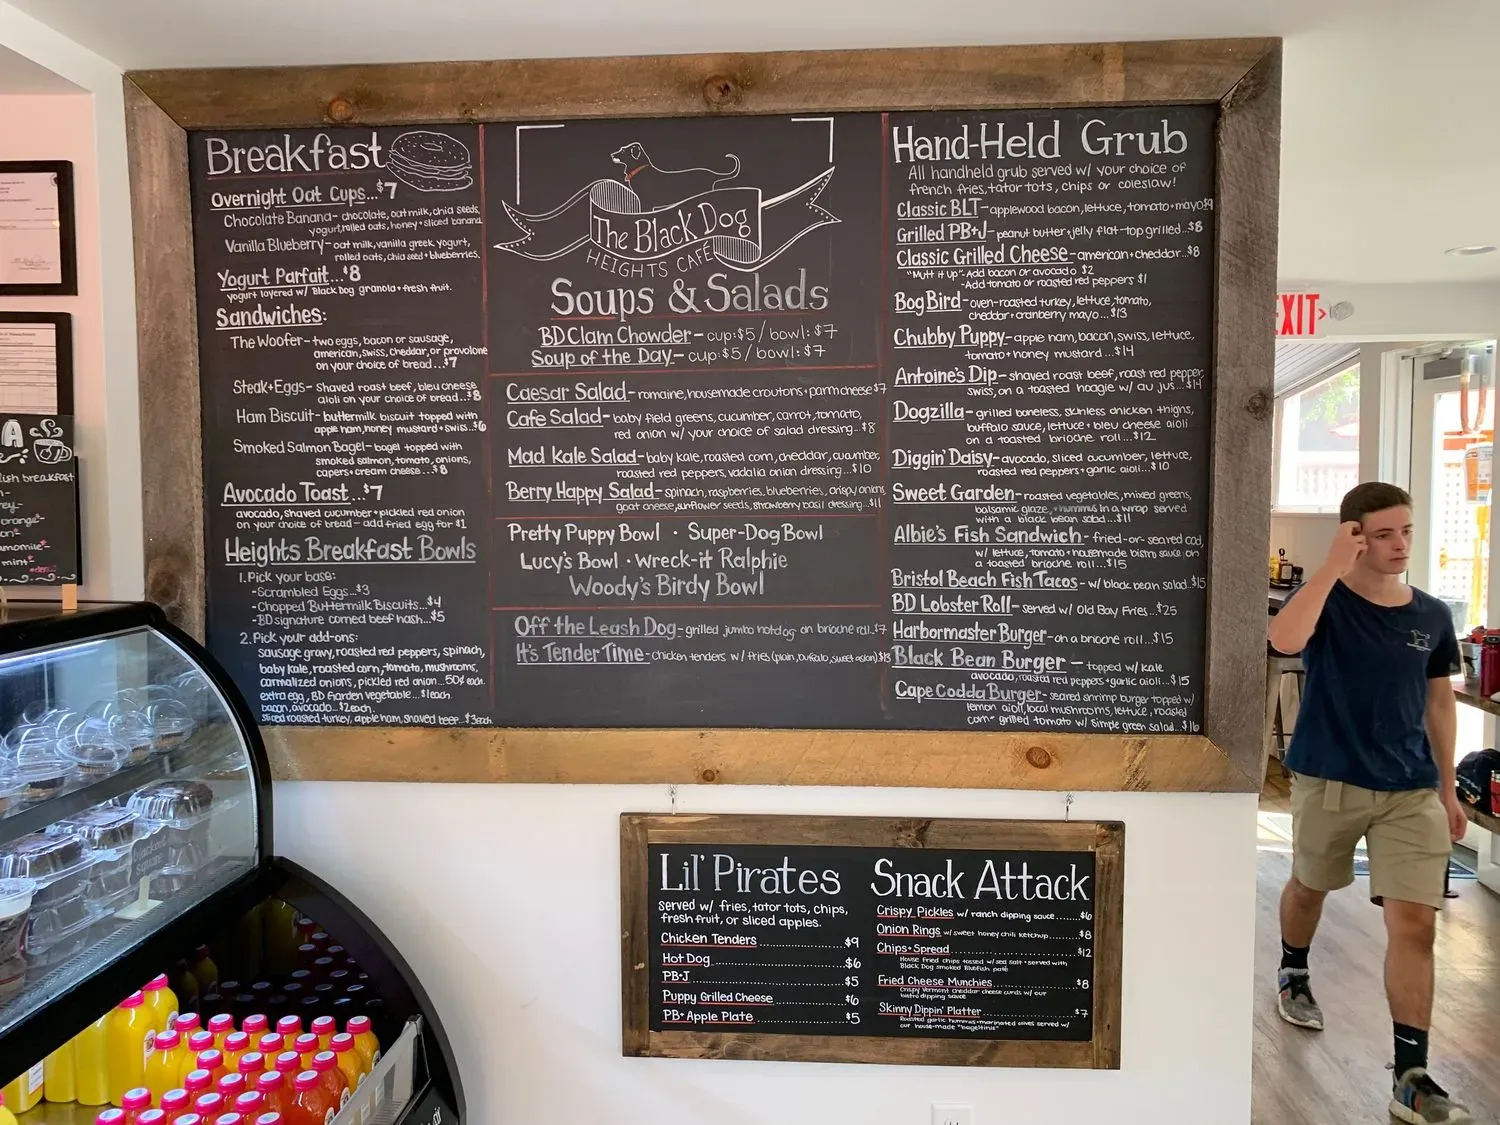 Breakfast
Overnight Oat Cups...$7
Chocolate Banana- chocolate, oat milk, chia seeds,
yogurt, rolled oats, honey + sliced banana
Vanilla Blueberry- oat milk, vanilla greek yogurt,
rolled oats, chia seed + blueberries.
Yogurt Parfait...$8
yogurt layered w/ Black Dog granola + fresh fruit.
Sandwiches:
The Woofer- two eggs, bacon or sausage,
american, swiss, cheddar, or provolone
on your choice of bread...$7
Steak+Eggs- shaved roast beef, bleu cheese
aioli on your choice of bread...$8
Ham Biscuit- buttermilk biscuit topped with
apple ham, honey mustard + swiss...$6
Smoked Salmon Bagel- bagel topped with
smoked salmon, tomato, onions,
capers + cream cheese...$8
Avocado Toast...$7
avocado, shaved cucumber + pickled red onion
on your choice of bread- add fried egg for $1
Heights Breakfast Bowls
1. Pick your base:
-Scrambled Eggs...$3
-Chopped Buttermilk Biscuits...$4
-BD signature corned beef hash...$5
2. Pick your add-ons:
sausage gravy, roasted red peppers, spinach,
baby kale, roasted corn, tomato, mushrooms,
carmalized onions, pickled red onion...50¢ each.
extra egg, BD Garden vegetable...$1each.
bacon, avocado...$2each.
sliced roasted turkey, apple ham, shaved beef...$3each.
The Black Dog
HEIGHTS CAFÉ
Soups & Salads
BD Clam Chowder- cup:$5/bowl:$7
Soup of the Day- cup:$5/bowl:$7
Caesar Salad- romaine, housemade croutons + parm cheese $7
Cafe Salad- baby field greens, cucumber, carrot, tomato,
red onion w/ your choice of salad dressing...$8
Mad Kale Salad- baby kale, roasted corn, cheddar, cucumber,
roasted red peppers, vadalia onion dressing...$10
Berry Happy Salad- spinach, raspberries, blueberries, crispy onions
goat cheese, sunflower seeds, strawberry basil dressing...$11
Pretty Puppy Bowl · Super-Dog Bowl
Lucy's Bowl · Wreck-it Ralphie
Woody's Birdy Bowl
Off the Leash Dog- grilled jumbo hotdog on brioche roll..$7
It's Tender Time- chicken tenders w/ fries (plain, buffalo, sweet asian)$13
Hand-Held Grub
All handheld grub served w/ your choice of
french fries, tator tots, chips or coleslaw!
Classic BLT- applewood bacon, lettuce, tomato + mayo $9
Grilled PB+J- peanut butter + jelly flat-top grilled...$8
Classic Grilled Cheese- american + cheddar...$8
"Mutt it Up"- Add bacon or avocado $2
-Add tomato or roasted red peppers $1
Bog Bird- oven-roasted turkey, lettuce, tomato,
cheddar + cranberry mayo...$13
Chubby Puppy- apple ham, bacon, swiss, lettuce,
tomato + honey mustard...$14
Antoine's Dip- shaved roast beef, roast red pepper,
swiss, on a toasted hoagie w/ au jus...$14
Dogzilla- grilled boneless, skinless chicken thighs,
buffalo sauce, lettuce + bleu cheese aioli
on a toasted brioche roll...$12
Diggin' Daisy- avocado, sliced cucumber, lettuce,
roasted red peppers + garlic aioli...$10
Sweet Garden- roasted vegetables, mixed greens,
balsamic glaze, + hummus in a wrap served
with a black bean salad...$11
Albie's Fish Sandwich- fried-or-seared cod,
w/ lettuce, tomato + housemade bistro sauce on
a toasted brioche roll...$15
Bristol Beach Fish Tacos- w/ black bean salad..$15
BD Lobster Roll- served w/ Old Bay Fries...$25
Harbormaster Burger- on a brioche roll...$15
Black Bean Burger- topped w/ kale
avocado, roasted red peppers + garlic aioli...$15
Cape Codda Burger- seared shrimp burger topped w/
lemon aioli, local mushrooms, lettuce, roasted
corn + grilled tomato w/ simple green salad...$16
EXIT
Lil' Pirates
served w/ fries, tator tots, chips,
fresh fruit, or sliced apples.
Chicken Tenders...$9
Hot Dog...$6
PB+J...$5
Puppy Grilled Cheese...$6
PB+Apple Plate...$5
Snack Attack
Crispy Pickles w/ ranch dipping sauce...$6
Onion Rings w/ sweet honey chili ketchup...$8
Chips+Spread...$12
House fried chips tossed w/ sea salt + served with
Black Dog smoked Bluefish paté
Fried Cheese Munchies...$8
Crispy Vermont cheddar cheese curds w/ our
bistro dipping sauce
Skinny Dippin' Platter...$7
Roasted garlic hummus + marinated olives served w/
our house-made "bageltinis"